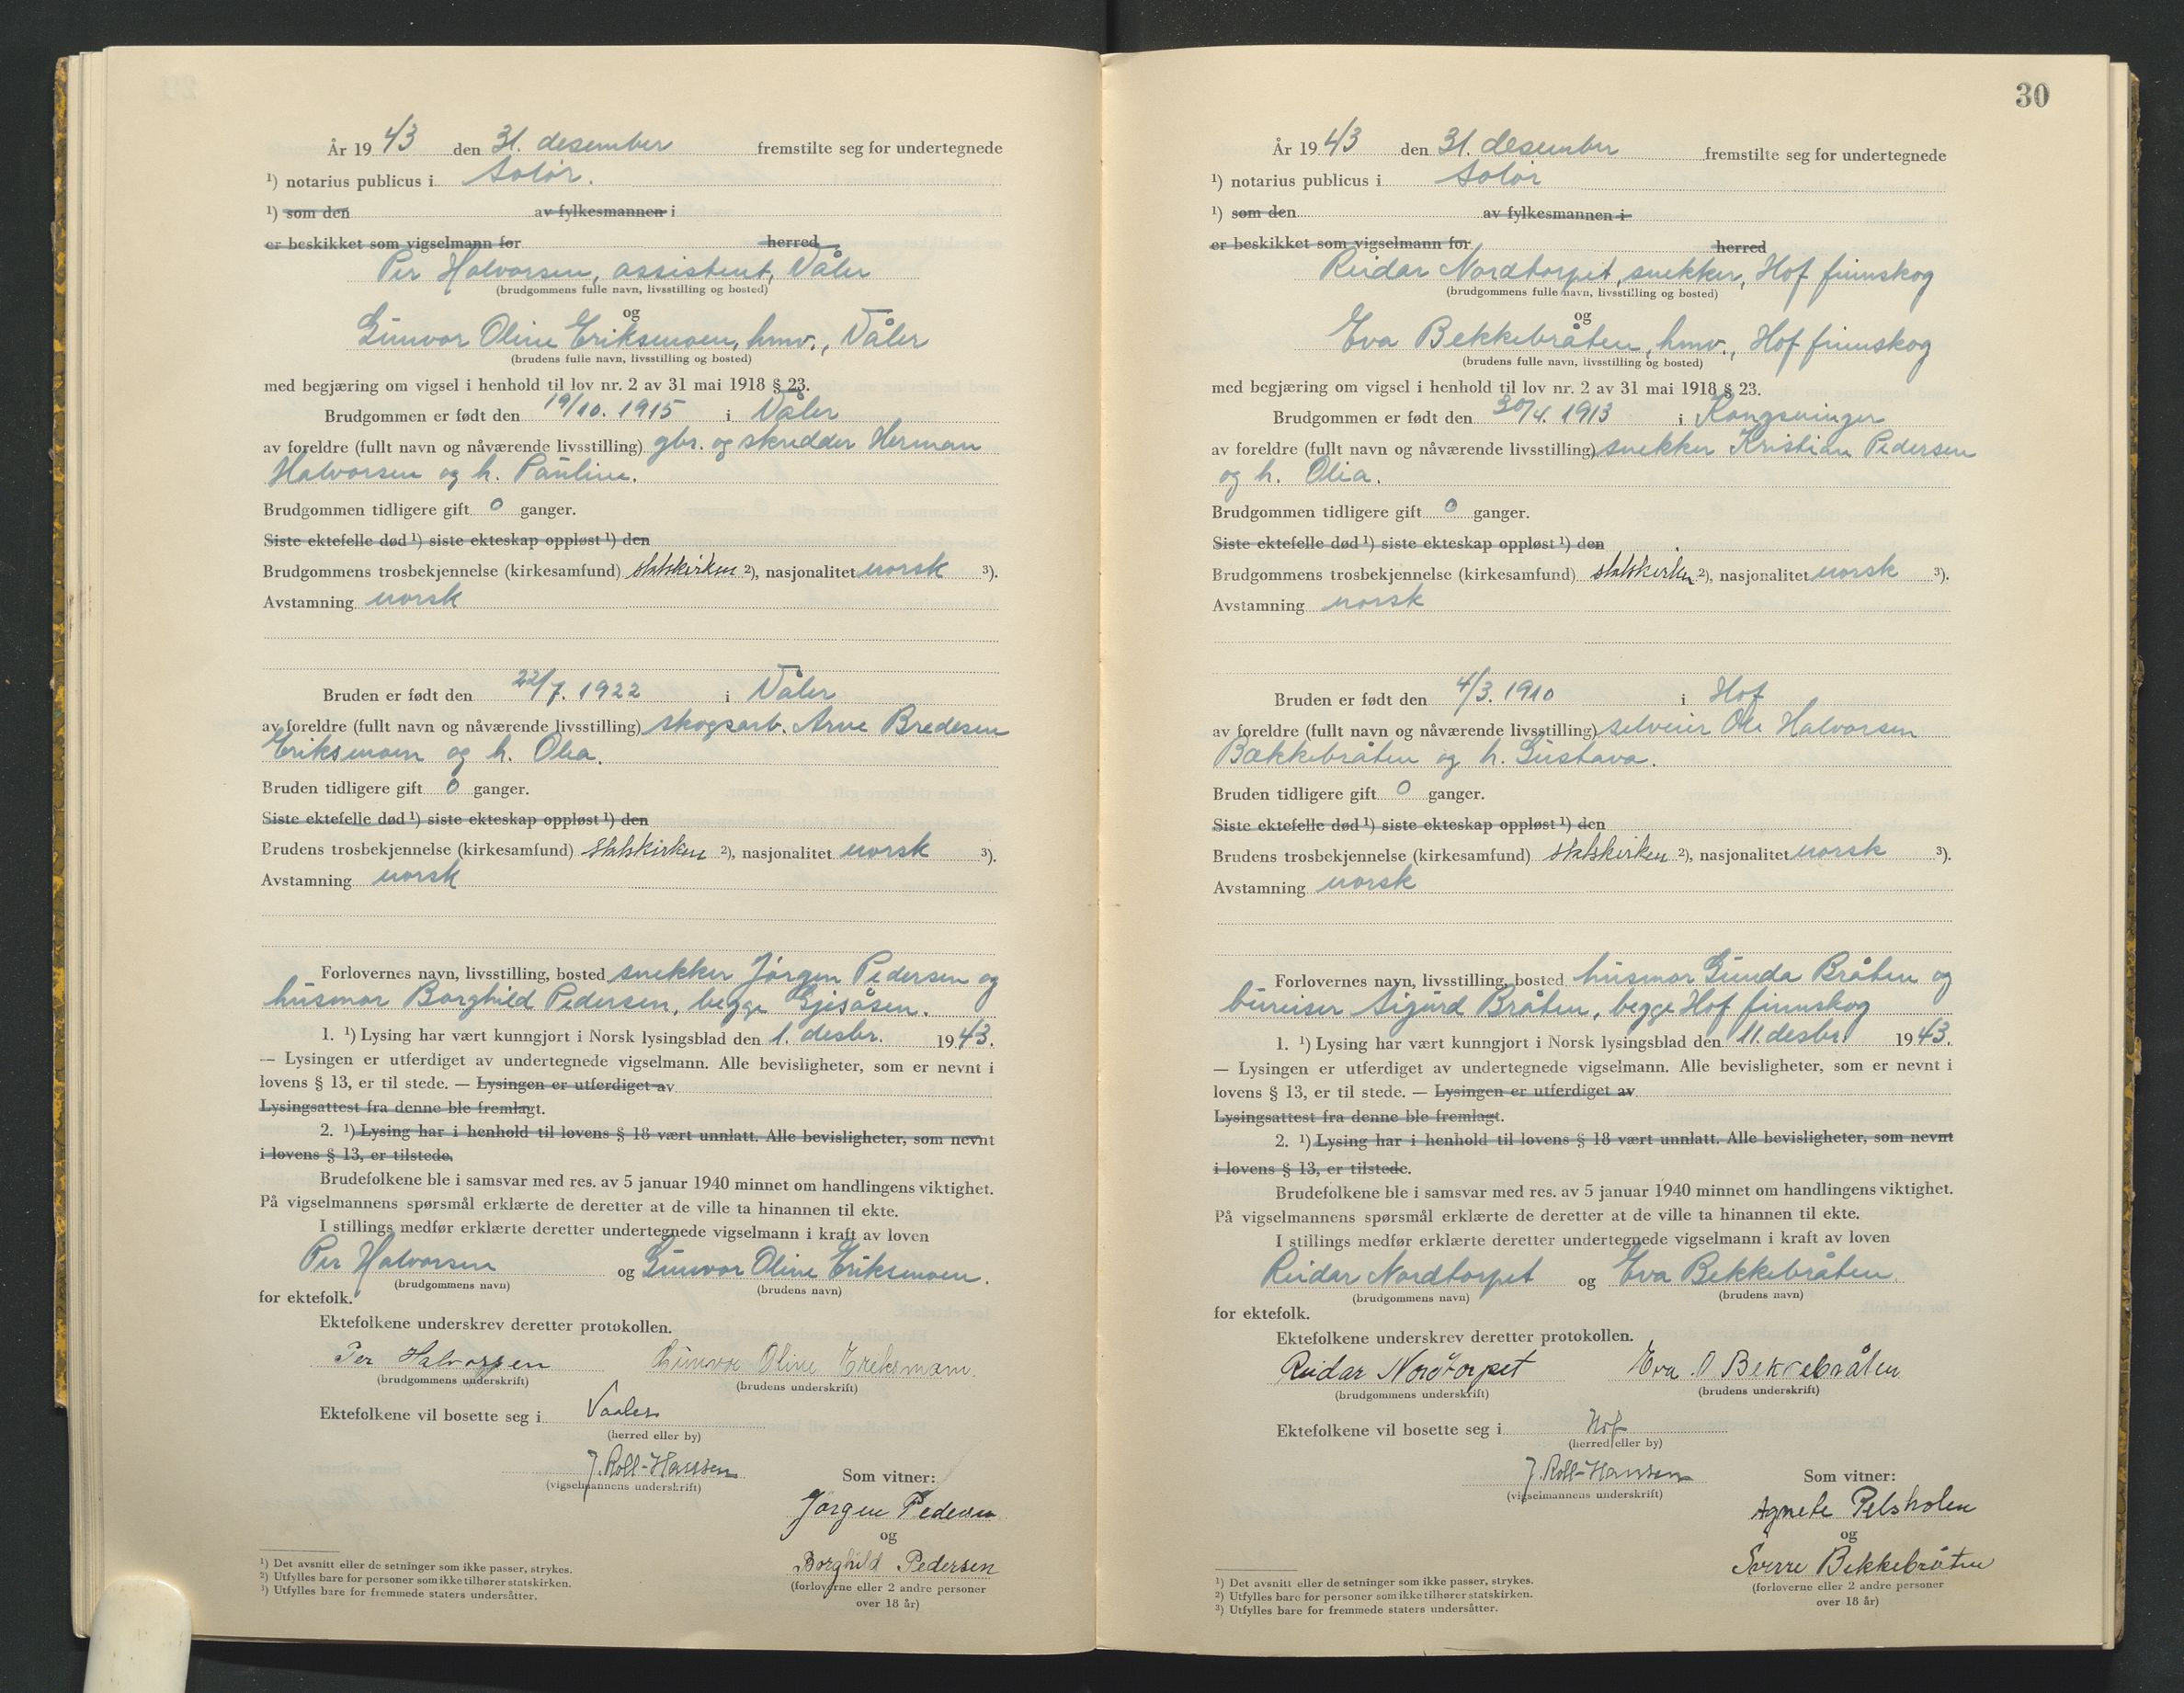 År 19 43 den 31. desember fremstilte seg for undertegnede
¹) notarius publicus i Solør.
¹) som den av fylkesmannen i
er beskikket som vigselmann for herred
Per Halvorsen, assistent, Våler
(brudgommens fulle navn, livsstilling og bosted)
og
Gunvor Oline Eriksmoen, hmv., Våler
(brudens fulle navn, livsstilling og bosted)
med begjæring om vigsel i henhold til lov nr. 2 av 31 mai 1918 § 23.
Brudgommen er født den 19/10. 1915 i Våler
av foreldre (fullt navn og nåværende livsstilling) gbr. og skredder Herman
Halvorsen og h. Pauline.
Brudgommen tidligere gift 0 ganger.
Siste ektefelle død ¹) siste ekteskap oppløst ¹) den
Brudgommens trosbekjennelse (kirkesamfund) statskirken ²), nasjonalitet norsk ³).
Avstamning norsk
Bruden er født den 22/7. 1922 i Våler
av foreldre (fullt navn og nåværende livsstilling) skogsarb. Arne Bredesen
Eriksmoen og h. Olea.
Bruden tidligere gift 0 ganger.
Siste ektefelle død ¹) siste ekteskap oppløst ¹) den
Brudens trosbekjennelse (kirkesamfund) statskirken ²), nasjonalitet norsk ³).
Avstamning norsk
Forlovernes navn, livsstilling, bosted snekker Jørgen Pedersen og
husmor Borghild Pedersen, begge Gjesåsen.
1. ¹) Lysing har vært kunngjort i Norsk lysingsblad den 1. desbr. 1943.
— Lysingen er utferdiget av undertegnede vigselmann. Alle bevisligheter, som er nevnt i
lovens § 13, er til stede. — Lysingen er utferdiget av
Lysingsattest fra denne ble fremlagt.
2. ¹) Lysing har i henhold til lovens § 18 vært unnlatt. Alle bevisligheter, som nevnt
i lovens § 13, er tilstede.
Brudefolkene ble i samsvar med res. av 5 januar 1940 minnet om handlingens viktighet.
På vigselmannens spørsmål erklærte de deretter at de ville ta hinannen til ekte.
I stillings medfør erklærte deretter undertegnede vigselmann i kraft av loven
Per Halvorsen og Gunvor Oline Eriksmoen.
(brudgommens navn) (brudens navn)
for ektefolk.
Ektefolkene underskrev deretter protokollen.
Per Halvorsen Gunvor Oline Eriksmoen.
(brudgommens underskrift) (brudens underskrift)
Ektefolkene vil bosette seg i Vaaler
(herred eller by)
J. Roll-Hanssen
(vigselmannens underskrift)
Som vitner:
Jørgen Pedersen
og
Borghild Pedersen
(forloverne eller 2 andre personer
over 18 år)
¹) Det avsnitt eller de setninger som ikke passer, strykes.
²) Utfylles bare for personer som ikke tilhører statskirken.
³) Utfylles bare for fremmede staters undersåtter.
30
År 19 43 den 31. desember fremstilte seg for undertegnede
¹) notarius publicus i Solør
¹) som den av fylkesmannen i
er beskikket som vigselmann for herred
Reidar Nordtorpet, snekker, Hof finnskog
(brudgommens fulle navn, livsstilling og bosted)
og
Eva Bekkebråten, hmv., Hof finnskog
(brudens fulle navn, livsstilling og bosted)
med begjæring om vigsel i henhold til lov nr. 2 av 31 mai 1918 § 23.
Brudgommen er født den 30/4. 1913 i Kongsvinger
av foreldre (fullt navn og nåværende livsstilling) snekker Kristian Pedersen
og h. Olia.
Brudgommen tidligere gift 0 ganger.
Siste ektefelle død ¹) siste ekteskap oppløst ¹) den
Brudgommens trosbekjennelse (kirkesamfund) statskirken ²), nasjonalitet norsk ³).
Avstamning norsk
Bruden er født den 4/3. 1910 i Hof
av foreldre (fullt navn og nåværende livsstilling) selveier Ole Halvorsen
Bækkebråten og h. Gustava.
Bruden tidligere gift 0 ganger.
Siste ektefelle død ¹) siste ekteskap oppløst ¹) den
Brudens trosbekjennelse (kirkesamfund) statskirken ²), nasjonalitet norsk ³).
Avstamning norsk
Forlovernes navn, livsstilling, bosted husmor Gunda Bråten og
bureiser Sigurd Bråten, begge Hof finnskog
1. ¹) Lysing har vært kunngjort i Norsk lysingsblad den 11. desbr. 1943.
— Lysingen er utferdiget av undertegnede vigselmann. Alle bevisligheter, som er nevnt i
lovens § 13, er til stede. — Lysingen er utferdiget av
Lysingsattest fra denne ble fremlagt.
2. ¹) Lysing har i henhold til lovens § 18 vært unnlatt. Alle bevisligheter, som nevnt
i lovens § 13, er tilstede.
Brudefolkene ble i samsvar med res. av 5 januar 1940 minnet om handlingens viktighet.
På vigselmannens spørsmål erklærte de deretter at de ville ta hinannen til ekte.
I stillings medfør erklærte deretter undertegnede vigselmann i kraft av loven
Reidar Nordtorpet og Eva Bekkebråten.
(brudgommens navn) (brudens navn)
for ektefolk.
Ektefolkene underskrev deretter protokollen.
Reidar Nordtorpet Eva O Bekkebråten.
(brudgommens underskrift) (brudens underskrift)
Ektefolkene vil bosette seg i Hof
(herred eller by)
J. Roll-Hanssen
(vigselmannens underskrift)
Som vitner:
Agnete Pelsholen
og
Sverre Bekkebråten
(forloverne eller 2 andre personer
over 18 år)
¹) Det avsnitt eller de setninger som ikke passer, strykes.
²) Utfylles bare for personer som ikke tilhører statskirken.
³) Utfylles bare for fremmede staters undersåtter.